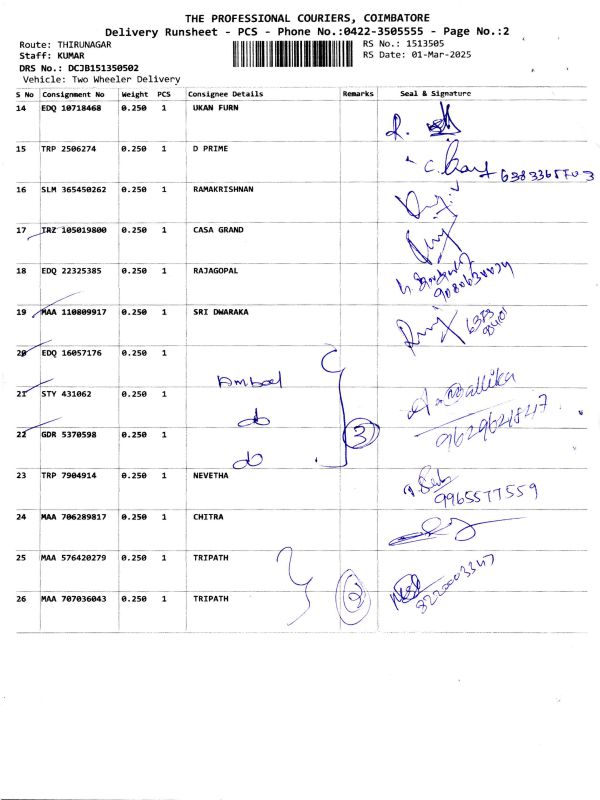 THE PROFESSIONAL COURIERS, COIMBATORE
Delivery Runsheet - PCS - Phone No.:0422-3505555 - Page No.:2
Route: THIRUNAGAR RS No.: 1513505
Staff: KUMAR RS Date: 01-Mar-2025
DRS No.: DCJB151350502
Vehicle: Two Wheeler Delivery
S No Consignment No Weight PCS Consignee Details Remarks Seal & Signature
14 EDQ 10718468 0.250 1 UKAN FURN
15 TRP 2506274 0.250 1 D PRIME
16 SLM 365450262 0.250 1 RAMAKRISHNAN
17 TRZ 105019800 0.250 1 CASA GRAND
18 EDQ 22325385 0.250 1 RAJAGOPAL
19 MAA 110809917 0.250 1 SRI DWARAKA
20 EDQ 16057176 0.250 1
21 STY 431062 0.250 1
22 GDR 5370598 0.250 1 do 3 9629621847
do
23 TRP 7904914 0.250 1 NEVETHA
9965577559
24 MAA 706289817 0.250 1 CHITRA
25 MAA 576420279 0.250 1 TRIPATH
26 MAA 707036043 0.250 1 TRIPATH 2 8220003347